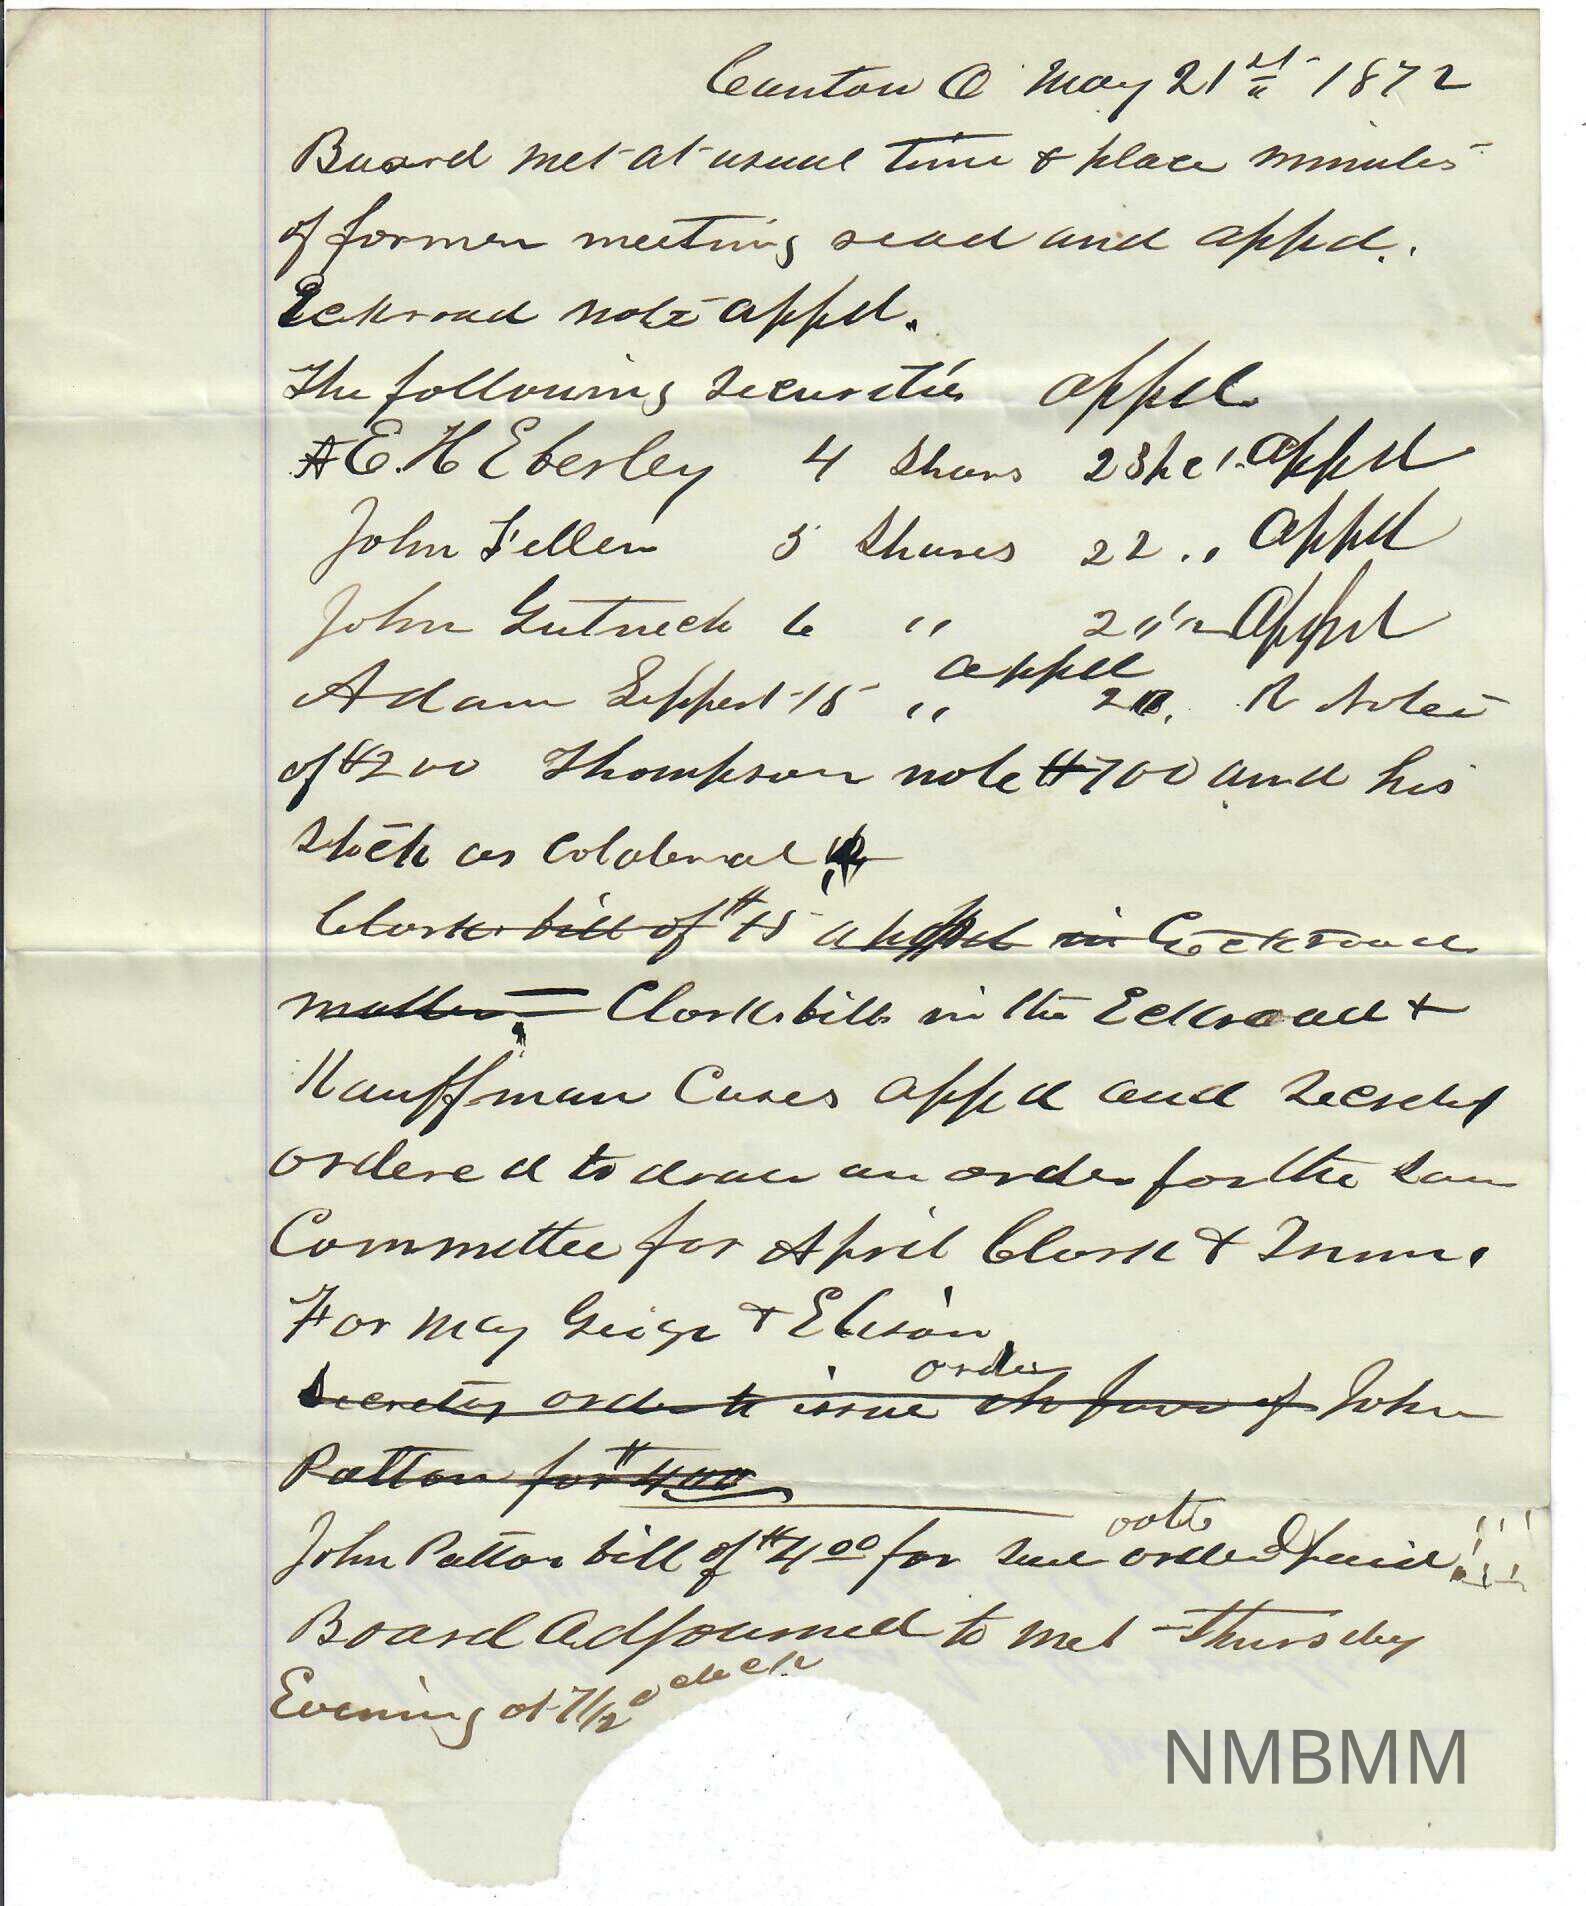 Canton O May 21st 1872
Board met at usual time & place minutes
of former meeting read and appd.
Eckroad note appd.
The following securities appd.
E. H Eberley 4 Shars appd
John Feller 5 Shares 22 " appd
John Gutneck 6 " appd
Adam Sippert 15 " appd R Notes
of $200 Thompson note $700 and his
Stock as Colateral
Clark bill of $15 appd in Eckroad
matter Clark bills in the Eckroad &
Kauffman Cases appd and
ordered to draw an order for the Sam
Committee for April Clark &
For May Geiger &
Secretay order to issue order in favor of John
Patton for $400
John Patton bill of $4.00 for orderd paid
Board Adjourned to met Thursday
Evening at 7 1/2 o clock
NMBMM